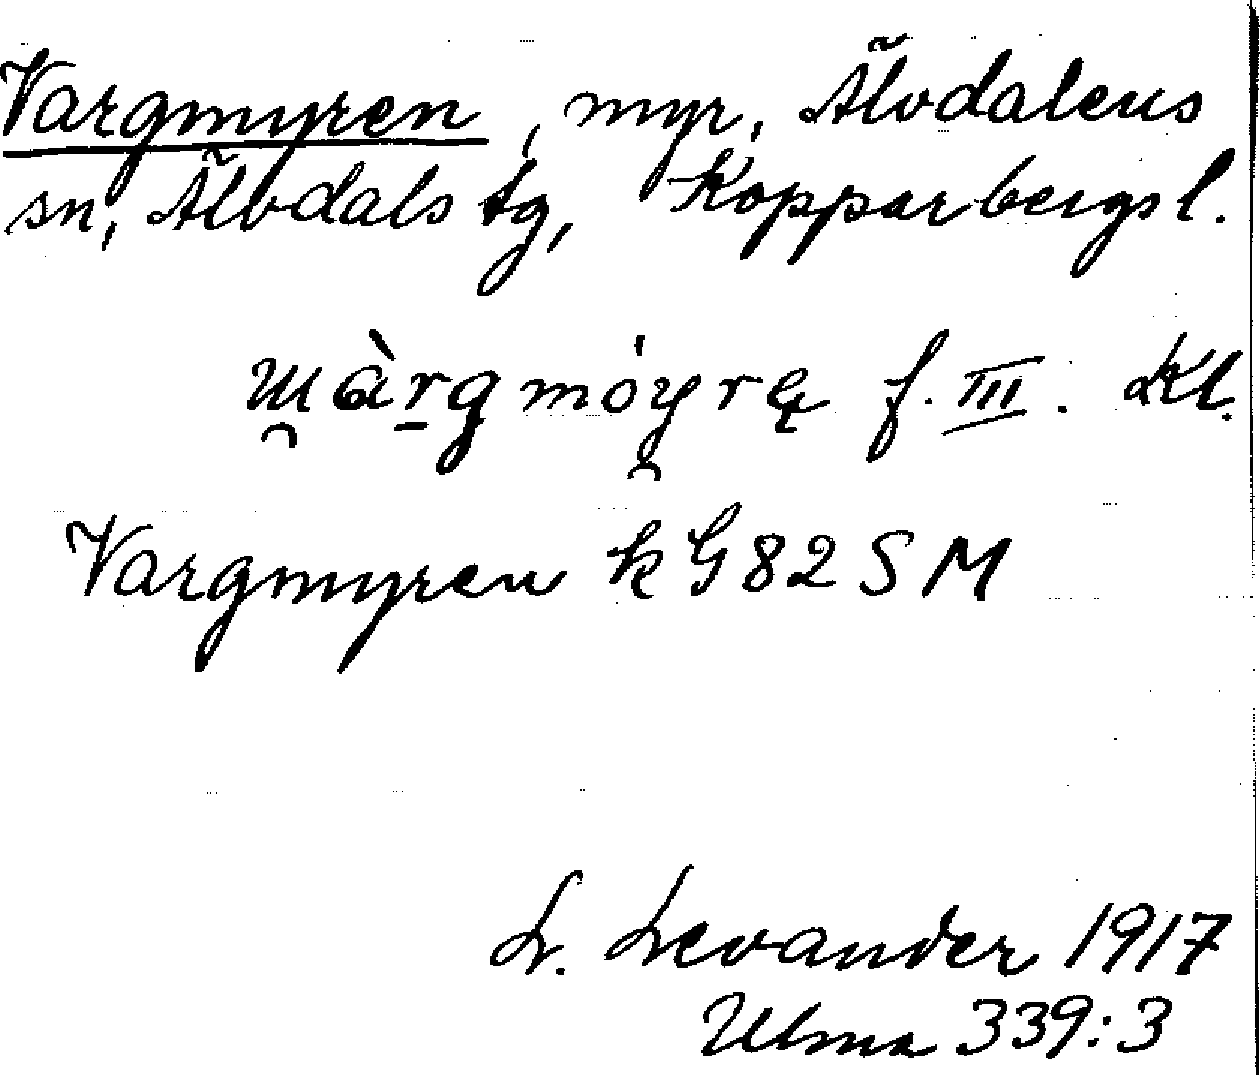 Vargmyren, myr, Älvdalens
sn, Älvdals tg, Kopparbergs l.
f. III. Kl.
Vargmyren k G 82 S M
L. Levander 1917
Ulma 339:3